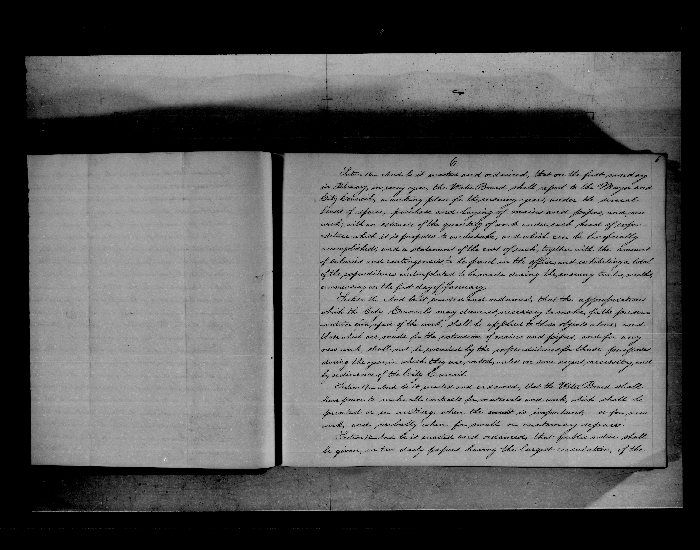 6
Section And be it enacted and ordained, that on the first monday
in February, in every year, the Water Board shall report to the Mayor and
City Council, a working plan for the ensuing year, under the several
heads of repairs, purchase and laying of mains and pipes, and new
work; with an estimate of the quantity of work under each head of expen-
diture which it is proposed to undertake, and which can be properly
accomplished; and a statement of the cost of each, together with the amount
of salaries and contingencies to be fixed in the office, and exhibiting a total
of the expenditures contemplated to be made during the ensuing twelve months,
commencing on the first day of January.
Section And be it enacted and ordained, that the appropriations
which the City Councils may deem it necessary to make, for the
several of the work, shall be applied to those objects alone and
that which are made for the extension of mains and pipes, and for any
new work shall not be exceeded by the expenditures for those purposes
during the year in which they are voted, unless in some urgent necessity, and
by ordinance of the City Council.
Section And be it enacted and ordained, that the Water Board shall
have power to make all contracts for materials and work, which shall be
printed or in writing when the amount is important, or for new
work, and verbally when for small or customary repairs.
Section And be it enacted and ordained, that public notice shall
be given, in two daily papers having the largest circulation, of the